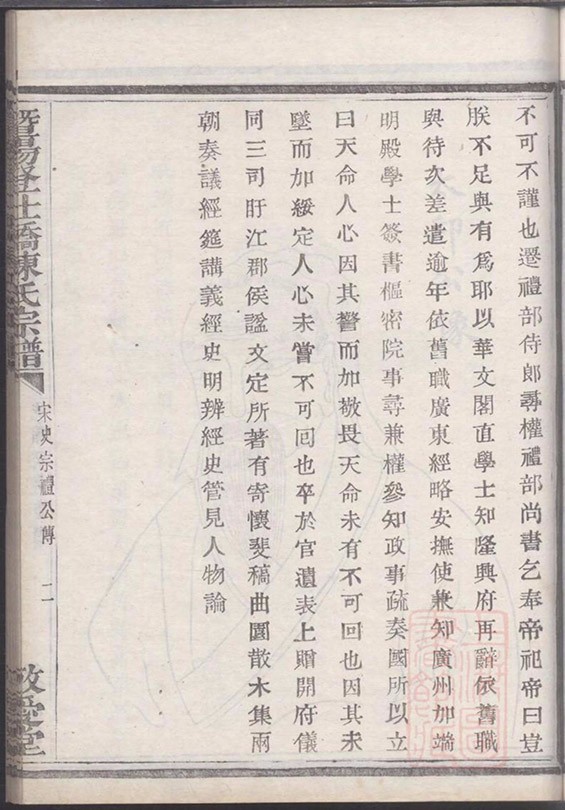 不可不謹也遷禮部侍郎尋權禮部尚書乞奉帝祀帝曰豈
朕不足與有爲耶以華文閣直學士知隆興府再辭依舊職
與待次差遣逾年依舊職廣東經略安撫使兼知廣州加端
明殿學士簽書樞密院事尋兼權參知政事疏奏國所以立
曰天命人心因其警而加敬畏天命未有不可回也因其未
墜而加綏定人心未嘗不可回也卒於官遺表上贈開府儀
同三司盱江郡侯諡文定所著有寄懷斐稿曲園散木集兩
朝奏議經筵講義經史明辨經史管見人物論
暨陽登仕橋陳氏宗譜
宋史宗禮公傳
二
敬愛堂